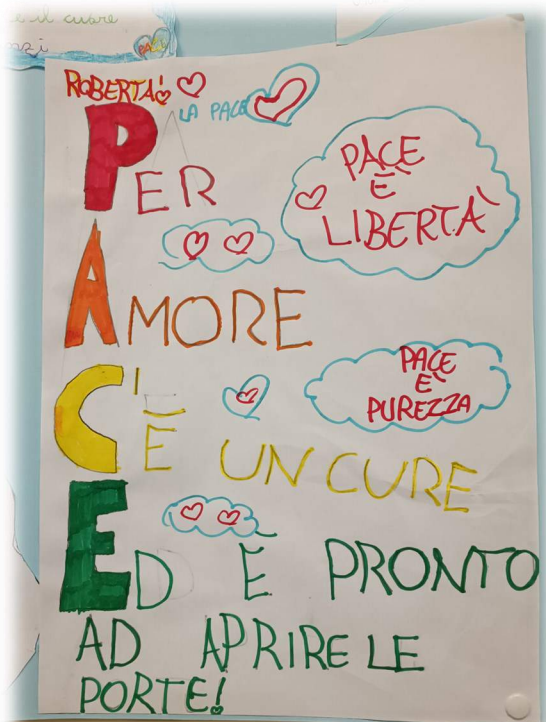 e il cuore
ROBERTA!
LA PACE
PER
PACE
È
LIBERTÀ
AMORE
PACE
È
PUREZZA
C'È UN CURE
ED E PRONTO
AD APRIRE LE
PORTE!